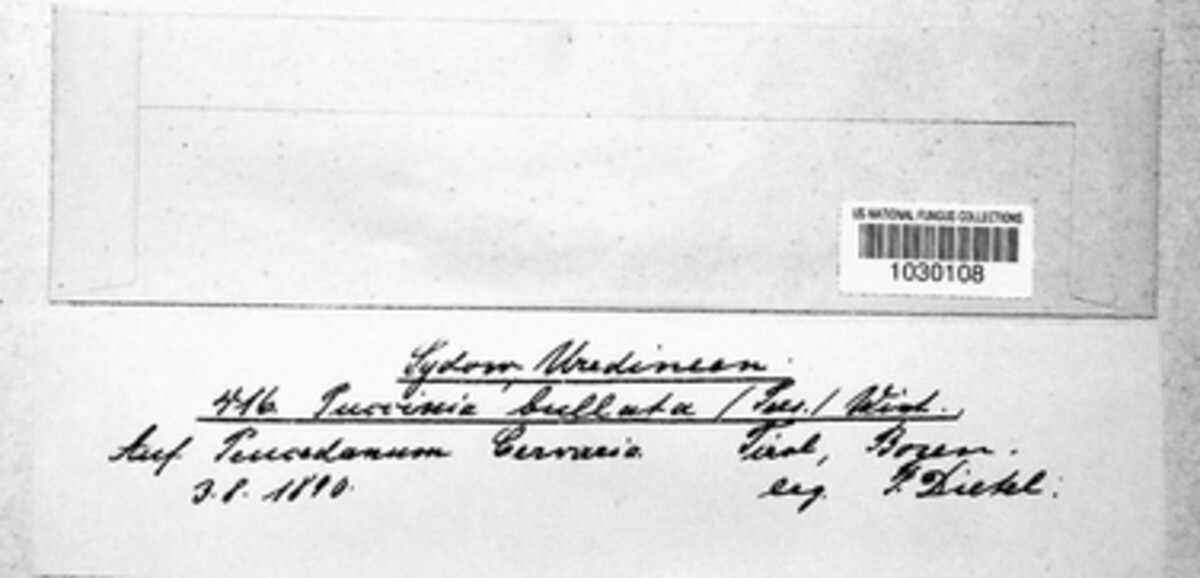 US NATIONAL FUNGUS COLLECTIONS
1030108
Sydow, Uredineen.
416. Puccinia bullata (Pers.) Wint.
Auf Peucedanum Cervaria. Tirol, Bozen.
3.8.1890. leg. P. Dietel.